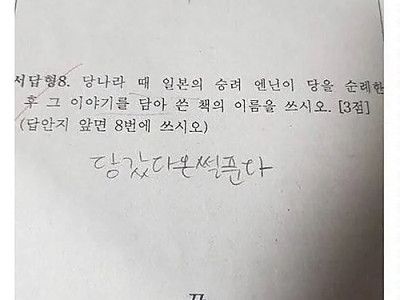 서답형8. 당나라 때 일본의 승려 엔닌이 당을 순례한
후 그 이야기를 담아 쓴 책의 이름을 쓰시오. [3점]
(답안지 앞면 8번에 쓰시오)
당갔다온썰푼다